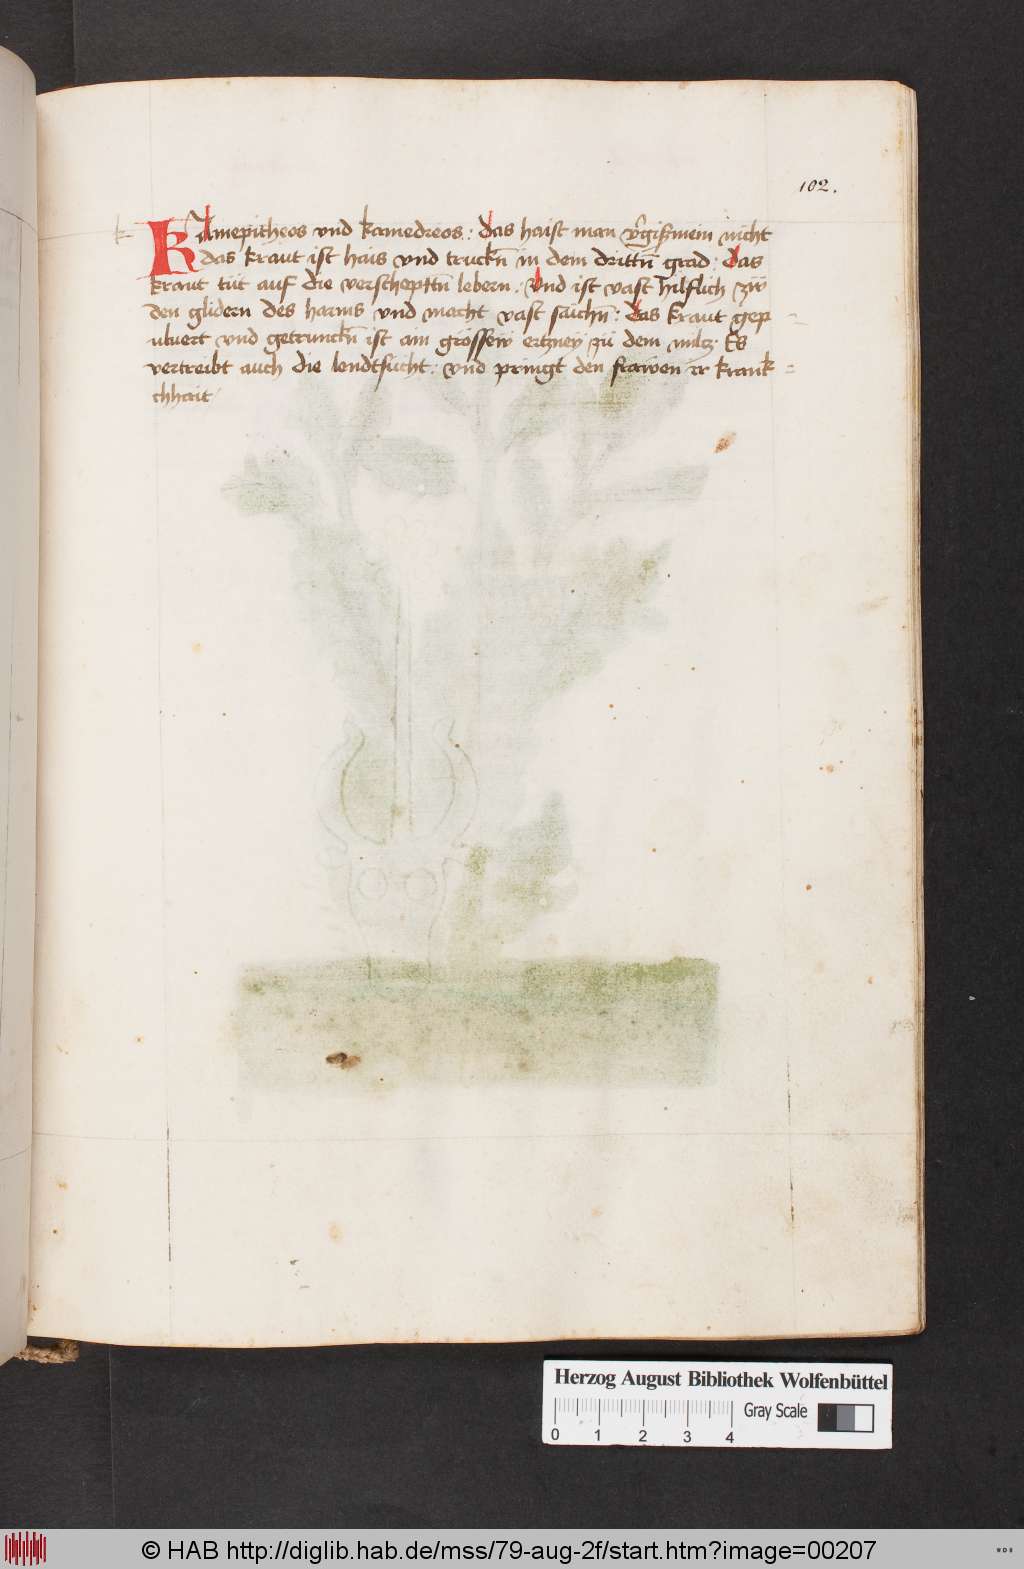 102.
k
KAmepitheos vnd kamedreos : das haist man v̾gismein nicht
das kraut ist hais vnd truckn̄ in dem drittn̄ grad : das
kraut tüt auf die verschopttn̄ lebern : vnd ist vast hilflich zü
den glidern des harms vnd macht vast saichn̄ : das kraut gep
uluert vnd getrunckn̄ ist ain grösseẅ ertzneÿ zü dem miltz Es
vertreibt auch die lendtsücht : vnd pringt den frawen ir krank
chhait
Herzog August Bibliothek Wolfenbüttel
Gray Scale
0 1 2 3 4
© HAB http://diglib.hab.de/mss/79-aug-2f/start.htm?image=00207